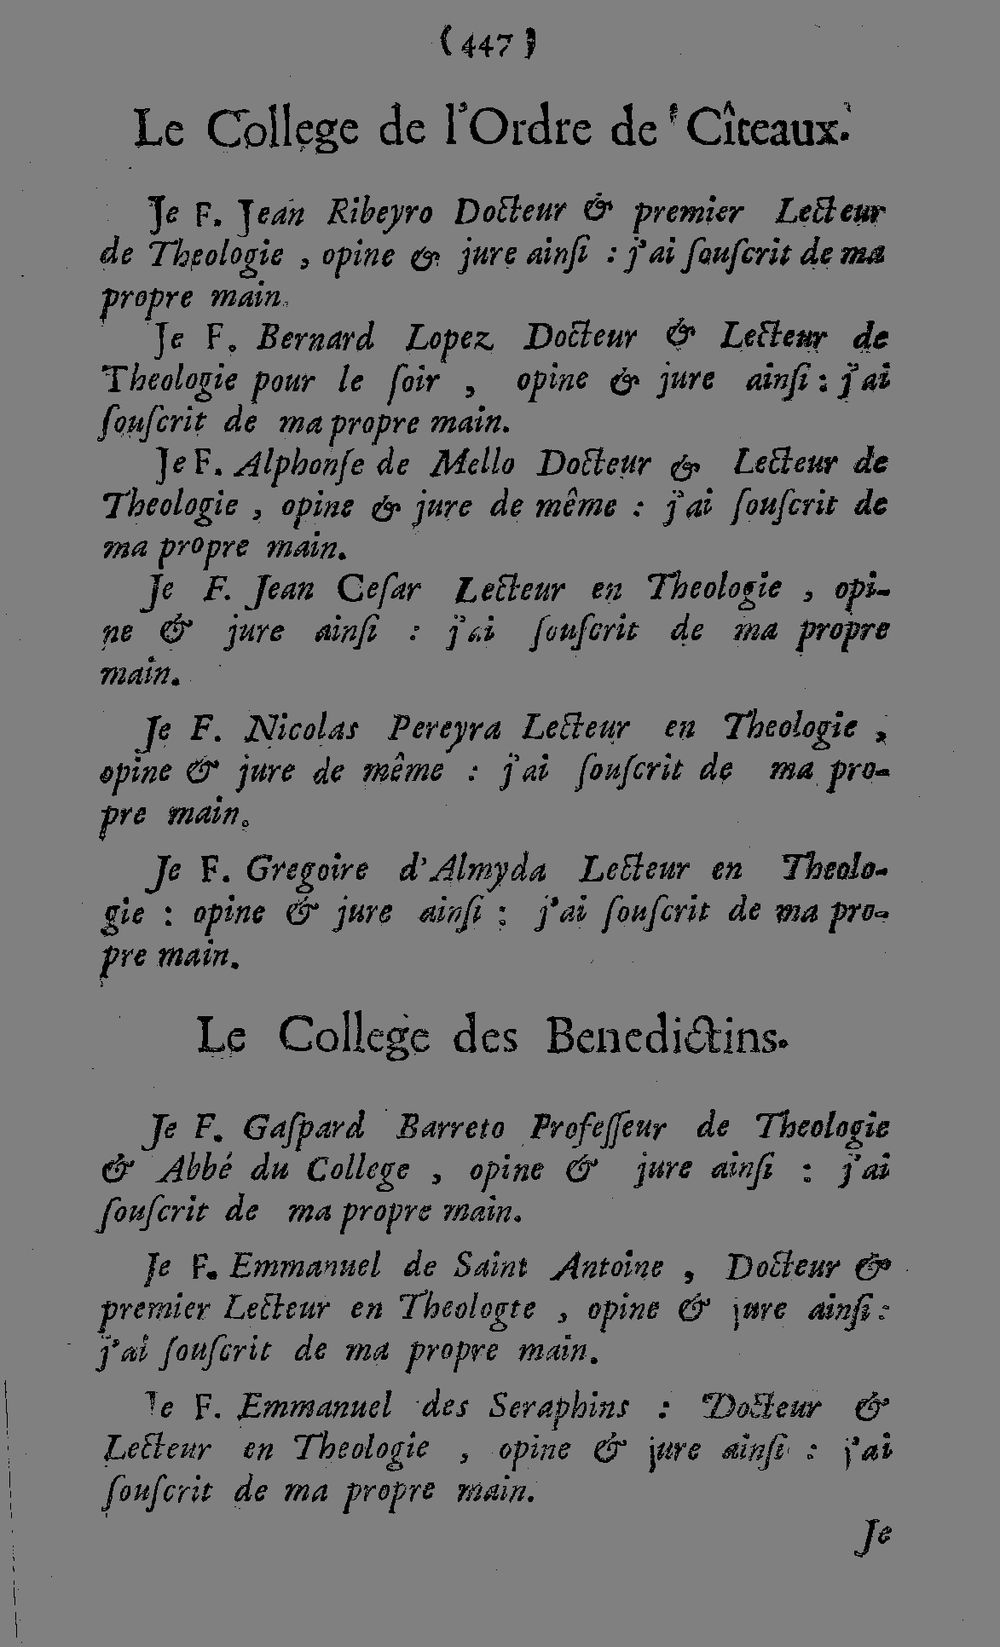 (447)
Le College de l'Ordre de Cîteaux.
Je F. Jean Ribeyro Docteur & premier Lecteur
de Theologie , opine & jure ainſi : j'ai ſouſcrit de ma
propre main.
Je F. Bernard Lopez Docteur & Lecteur de
Theologie pour le ſoir , opine & jure ainſi : j'ai
ſouſcrit de ma propre main.
Je F. Alphonſe de Mello Docteur & Lecteur de
Theologie , opine & jure de même : j'ai ſouſcrit de
ma propre main.
Je F. Jean Ceſar Lecteur en Theologie , opi-
ne & jure ainſi : j'ai ſouſcrit de ma propre
main.
Je F. Nicolas Pereyra Lecteur en Theologie ,
opine & jure de même : j'ai ſouſcrit de ma pro-
pre main.
Je F. Gregoire d'Almyda Lecteur en Theolo-
gie : opine & jure ainſi : j'ai ſouſcrit de ma pro-
pre main.
Le College des Benedictins.
Je F. Gaſpard Barreto Profeſſeur de Theologie
& Abbé du College , opine & jure ainſi : j'ai
ſouſcrit de ma propre main.
Je F. Emmanuel de Saint Antoine , Docteur &
premier Lecteur en Theologte , opine & jure ainſi :
j'ai ſouſcrit de ma propre main.
Je F. Emmanuel des Seraphins : Docteur &
Lecteur en Theologie , opine & jure ainſi : j'ai
ſouſcrit de ma propre main.
Je